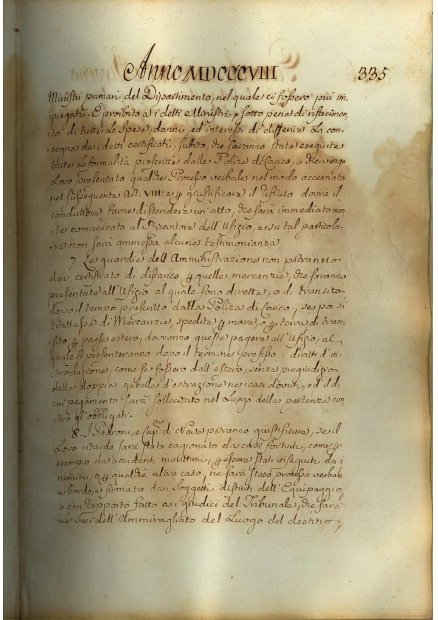 Anno MDCCCVIII 335
Ministri primari del Dipartimento, nel quale ci fossero più im
piegati. È proibito a i detti Ministri, sotto pena di rifacimen
to di tutte le spese, danni, ed interessi di differire la con
segna de i detti certificati, subito, che saranno state eseguite
tutte le formalità prescritte dalle Polize di carico, o che venga
Loro presentato qualche Processo verbale nel modo accennato
nel susseguente Art. VIII: e p giustificare il rifiuto dovrà il
conduttore farne distendere un'atto, che sarà immediatamen
te comunicato al Direttore dell'Ufizio, e su tal particola
re non sarà ammessa alcuna testimonianza.
7. Le guardie dell'Amministrazione non potranno
dar certificato di discarico p quelle mercanzie, che saranno
presentate all'Ufizio al quale sono dirette, o di transito
dopo il tempo prescritto dalla Poliza di Carico, se poi si
trattasse di Mercanzie, spedite p mare, o p terra di tran
sito p paese estero, dovranno queste pagare all'Ufizio, al
quale si presenteranno dopo il termine prefisso, i diritti d'in
troduzione, come se fossero dall'estero, senza pregiudizio
della doppia gabella d'estrazione ne i casi dovuti, ed il di
cui pagamento sarà sollecitato nel Luogo della partenza con
tro gl'obbligati.
8. I Padroni, e Cap.ni di Nave potranno giustificare, se il
Loro ritardo sarà stato cagionato da casi fortuiti, come p
esempio da accidenti marittimi, p essere stati inseguiti da i
nemici, o p qualche altro caso, ne farà stato processo verbale
a bordo, e firmato da i soggetti distinti dell'Equipaggio,
o con rapporto fatto a i giudici del Tribunale, che farà
Le veci dell'Ammiragliato del Luogo del destino;